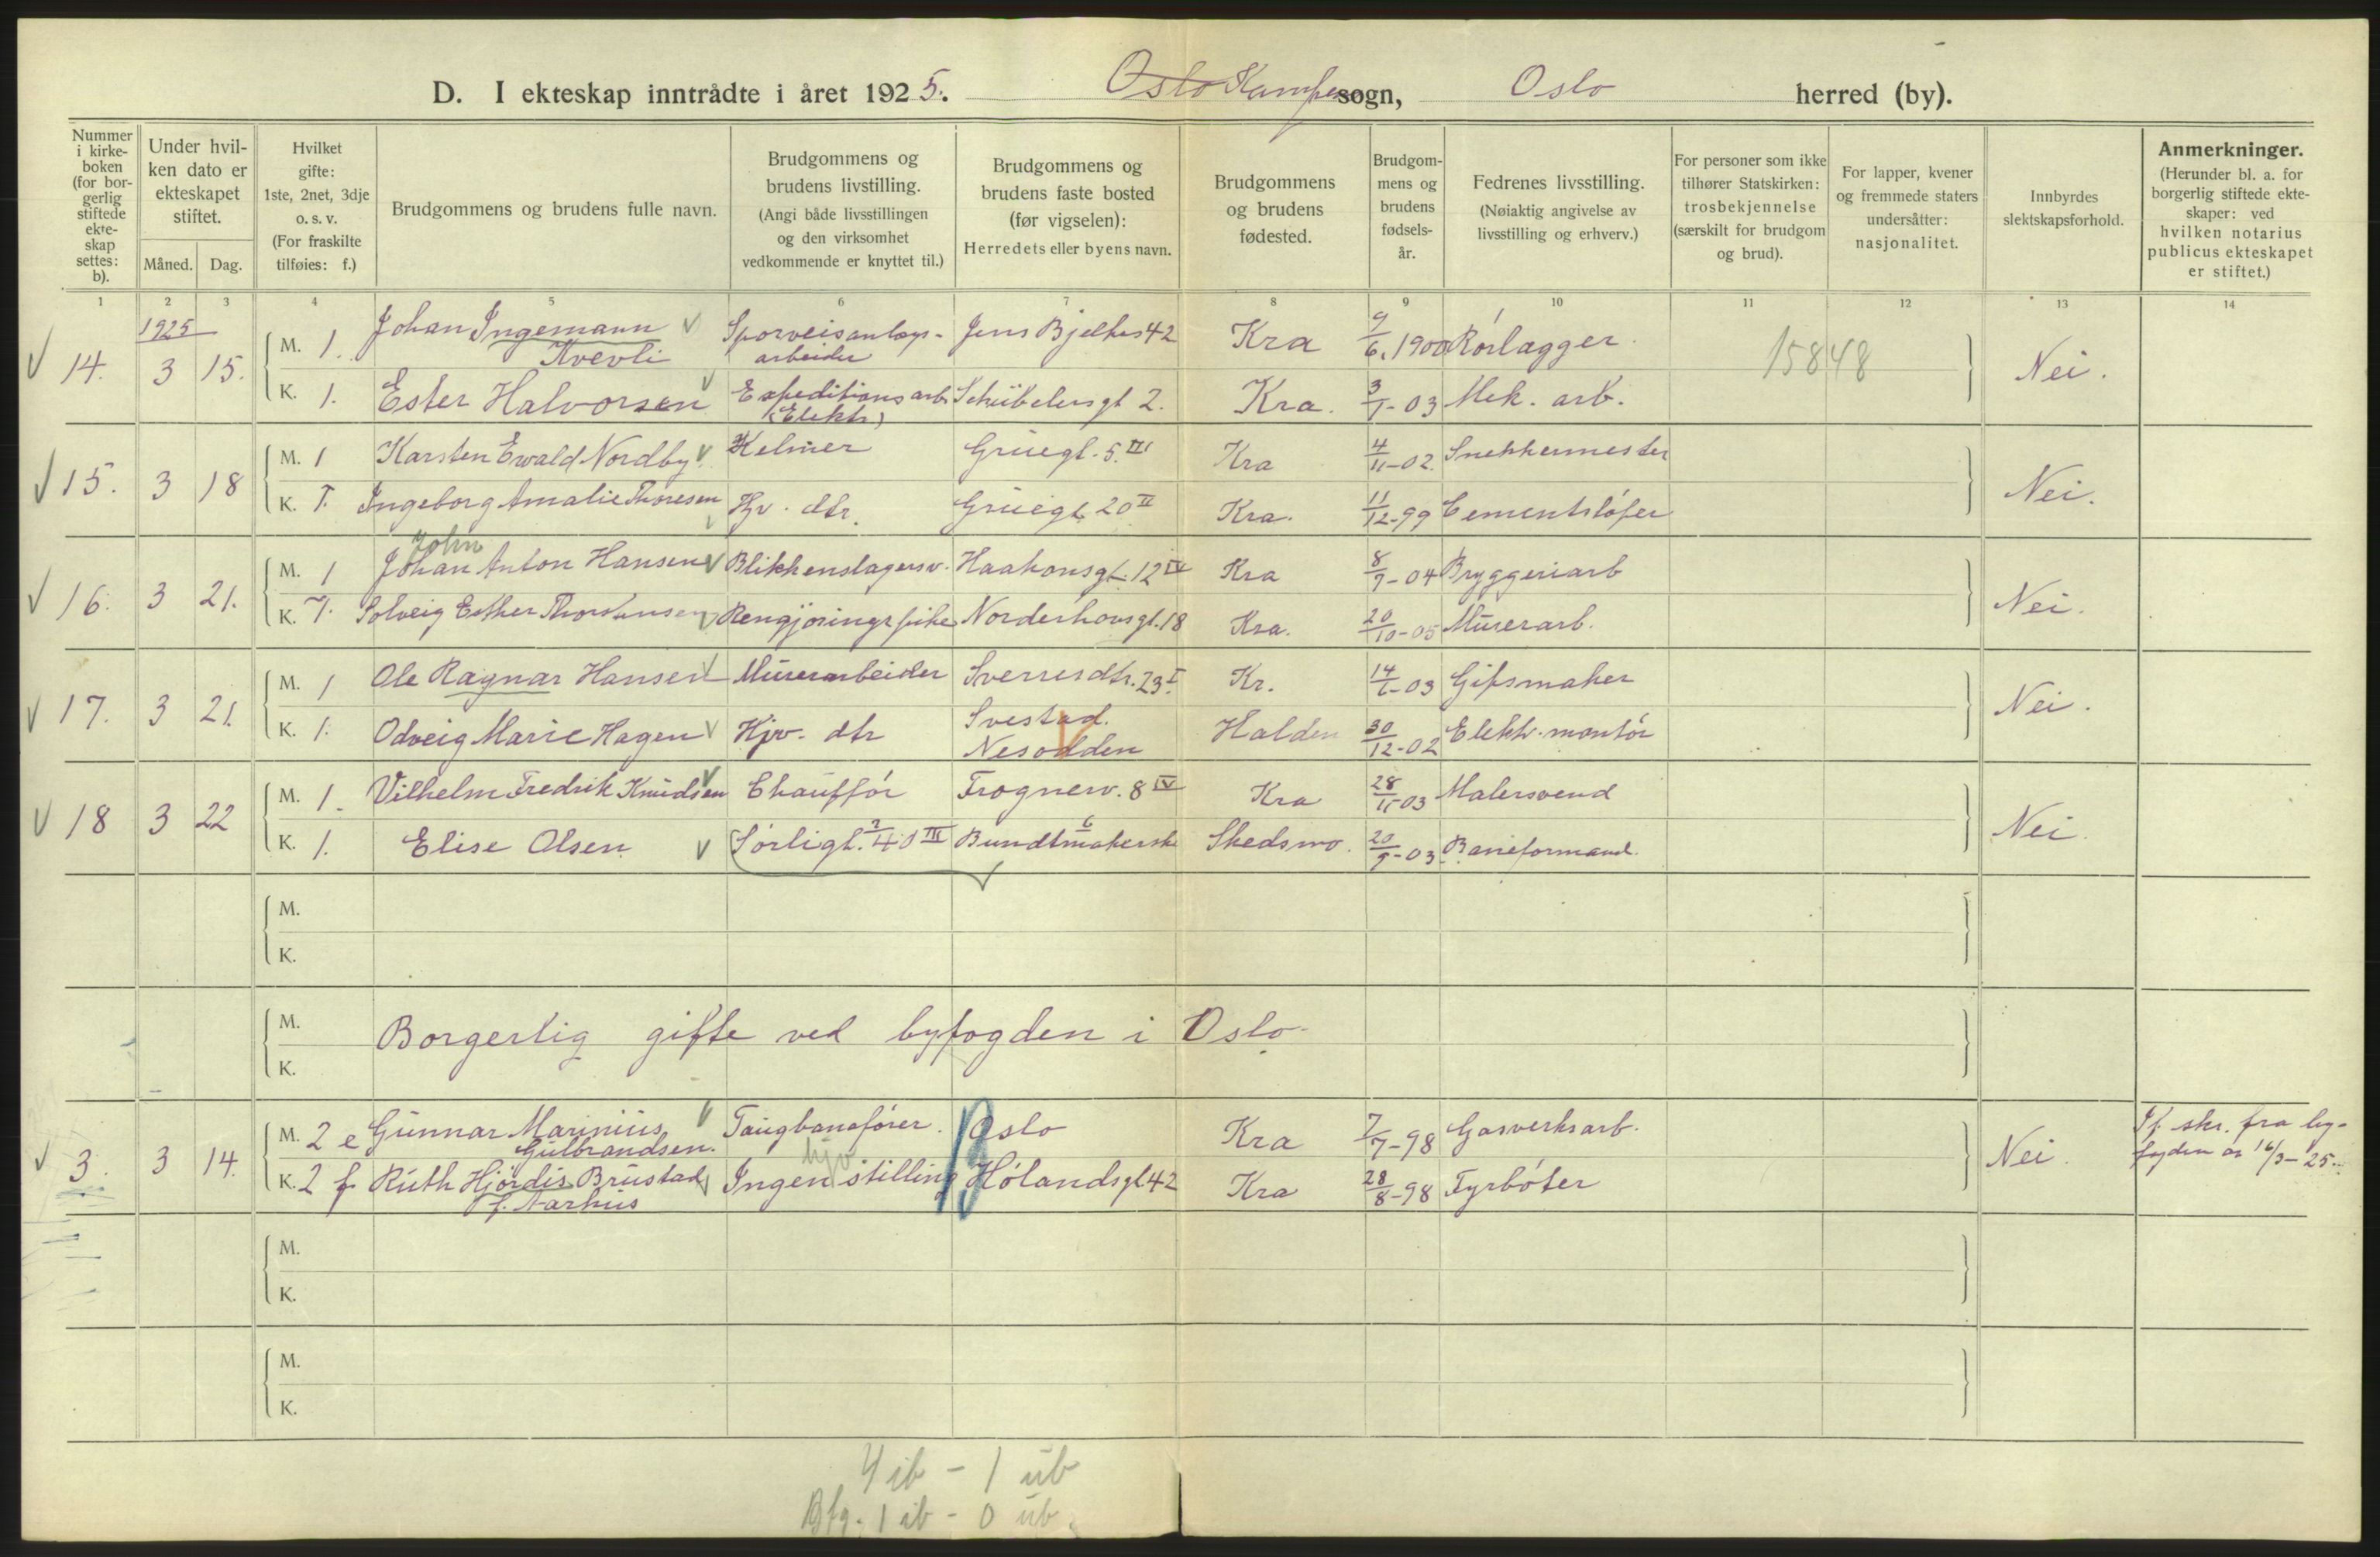 D. I ekteskap inntrådte i året 1925. Oslo Kampen sogn, Oslo herred (by).
Nummer i kirkeboken (for borgerlig stiftede ekteskap settes: b).
Under hvilken dato er ekteskapet stiftet.
Måned. Dag.
Hvilket gifte: 1ste, 2net, 3dje o. s. v. (For fraskilte tilføies: f.)
Brudgommens og brudens fulle navn.
Brudgommens og brudens livstilling. (Angi både livsstillingen og den virksomhet vedkommende er knyttet til.)
Brudgommens og brudens faste bosted (før vigselen): Herredets eller byens navn.
Brudgommens og brudens fødested.
Brudgommens og brudens fødselsår.
Fedrenes livsstilling. (Nøiaktig angivelse av livsstilling og erhverv.)
For personer som ikke tilhører Statskirken: trosbekjennelse (særskilt for brudgom og brud).
For lapper, kvener og fremmede staters undersåtter: nasjonalitet.
Innbyrdes slektskapsforhold.
Anmerkninger. (Herunder bl. a. for borgerlig stiftede ekteskaper: ved hvilken notarius publicus ekteskapet er stiftet.)
1 2 3 4 5 6 7 8 9 10 11 12 13 14
1925
14. 3 15. M. 1. Johan Ingemann Kvevli Sporveisanlægsarbeider Jens Bjelkes 42 Kra 9/6. 1900 Rörlægger. 15848 Nei.
K. 1. Ester Halvorsen Expeditionsarb. (Elektr) Schübelersgt 2. Kra. 3/1-03 Mek. arb.
15. 3 18 M. 1 Karsten Ewald Nordby Kelner Grüegt. 5. III Kra 4/11-02. Snekkermester Nei.
K. 1. Ingeborg Amalie Thoresen Hjv. dtr. Grüegt 20 II Kra. 11/12-99 Cementstöper
John
16. 3 21. M. 1 Johan Anton Hansen Blikkenslagersv. Haakonsgt. 12 IV Kra 8/9-04 Bryggeriarb Nei.
K. 1. Solveig Esther Thorstensen Rengjöringspike Norderhovsgt. 18 Kra. 20/10-05 Mürerarb.
17. 3 21. M. 1 Ole Ragnar Hansen Mürerarbeider Sverresdtr. 23 I. Kr. 14/6-03 Gipsmaker Nei.
K. 1. Odveig Marie Hagen Hjv. dtr Svestad. Nesodden Halden 30/12-02 Elektr. montör
18 3 22 M. 1. Vilhelm Fredrik Knüdsen Chaufför Frognerv. 8 IV Kra 28/11-03 Malersvend Nei.
K. 1. Elise Olsen Sörligt. 40 III Bundtmakerske Skedsmo. 20/9-03 Baneformand.
M.
K.
M. Borgerlig gifte ved byfogden i Oslo
K.
3. 3 14. M. 2 e Günnar Marinius Gülbrandsen. Taugbaneförer. Oslo Kra 7/7-98 Gasverksarb. Nei. If. skr. fra byfogden av 16/3-25.
K. 2 f Rüth Hjördis Brüstad f. Aarhüs Ingen stilling hjv Hölandsgt. 42 Kra 28/8-98 Fyrböter
M.
K.
M.
K.
4 ib - 1 üb
Bfg. 1 ib - 0 üb.